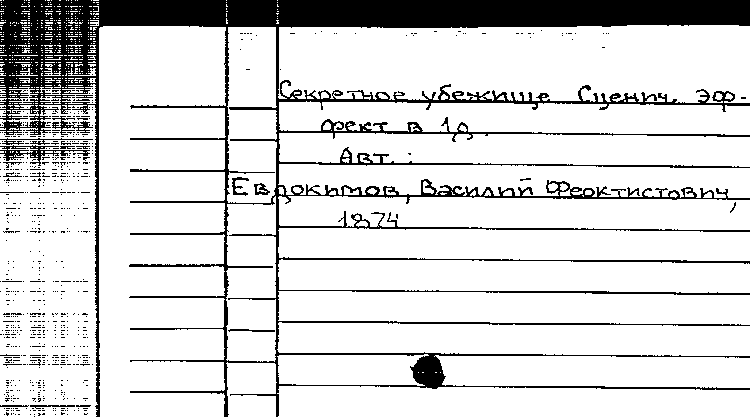 Секретное убежище Сценич. эф-
фект в 1д.
Авт.:
Евдокимов, Василий Феоктистович,
1874